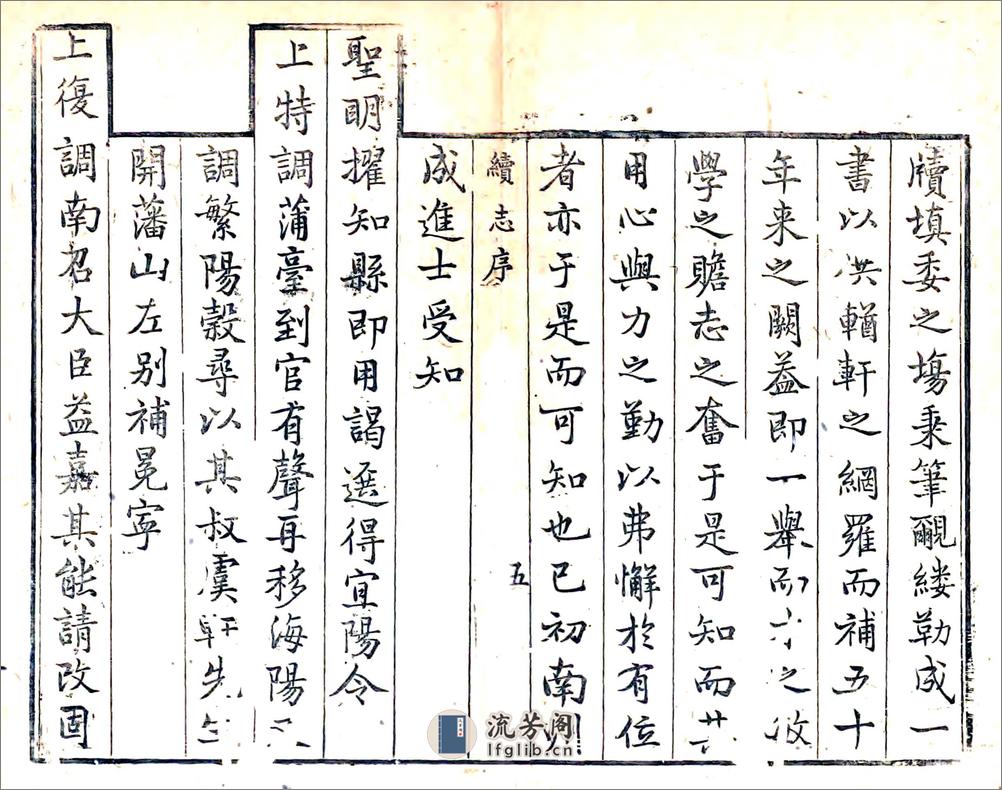 牘填委之塲秉筆覼縷勒成一
書以洪輶軒之網羅而補五十
年来之闕葢即一舉而
學之贍志之奮于是可知而其
用心與力之勤以弗懈於有位
者亦于是而可知也已初南
續志序
五
成進士受知
聖明擢知縣即用謁選得宜陽令
上特調蒲臺到官有聲再移海陽
調繁陽穀尋以其叔虞軒先生
開藩山左别補冕寧
上復調南召大臣益嘉其能請改固
流芳阁
lfglib.cn